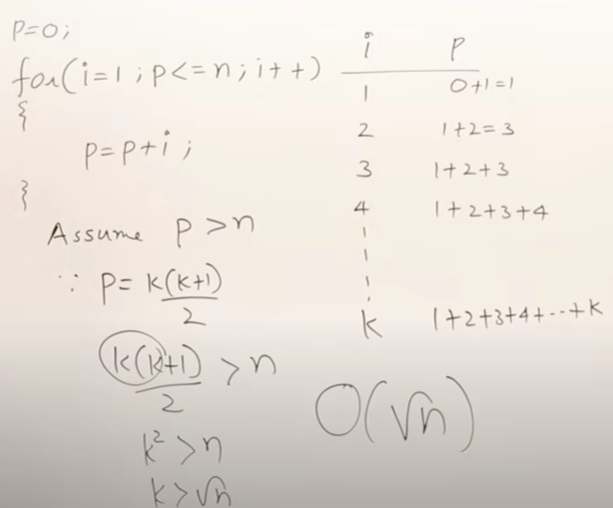 P=0;
for(i=1;p<=n;i++)
{
p=p+i;
}
Assume p>n
∵ p=k(k+1)/2
k(k+1)/2 >n
k²>n
k>√n
i p
1 0+1=1
2 1+2=3
3 1+2+3
4 1+2+3+4
k 1+2+3+4+--+k
O(√n)